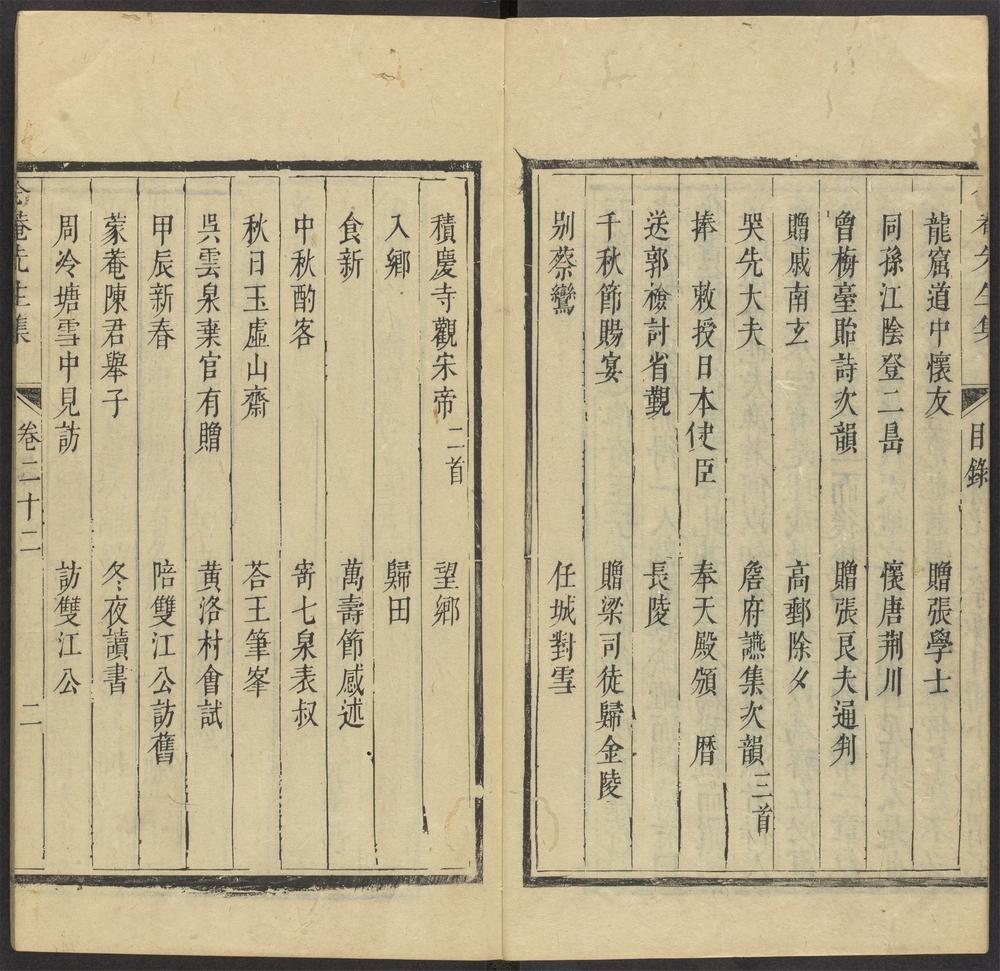 菴先生集 目錄
龍窟道中懷友 贈張學士
同孫江陰登二嵓 懷唐荆川
曾梅臺貽詩次韻 贈張艮夫通判
贈戚南玄 高郵除夕
哭先大夫 詹府讌集次韻三首
捧 敕授日本使臣 奉天殿頒 曆
送郭檢討省覲 長陵
千秋節賜宴 贈梁司徒歸金陵
别蔡鸞 任城對雪
積慶寺觀宋帝二首 望鄉
入鄉 歸田
食新 萬壽節感述
中秋酌客 寄七泉表叔
秋日玉虛山齋 荅王筆峯
吳雲泉棄官有贈 黄洛村會試
甲辰新春 陪雙江公訪舊
蒙菴陳君舉子 冬夜讀書
周冷塘雪中見訪 訪雙江公
念菴先生集 卷二十二 二